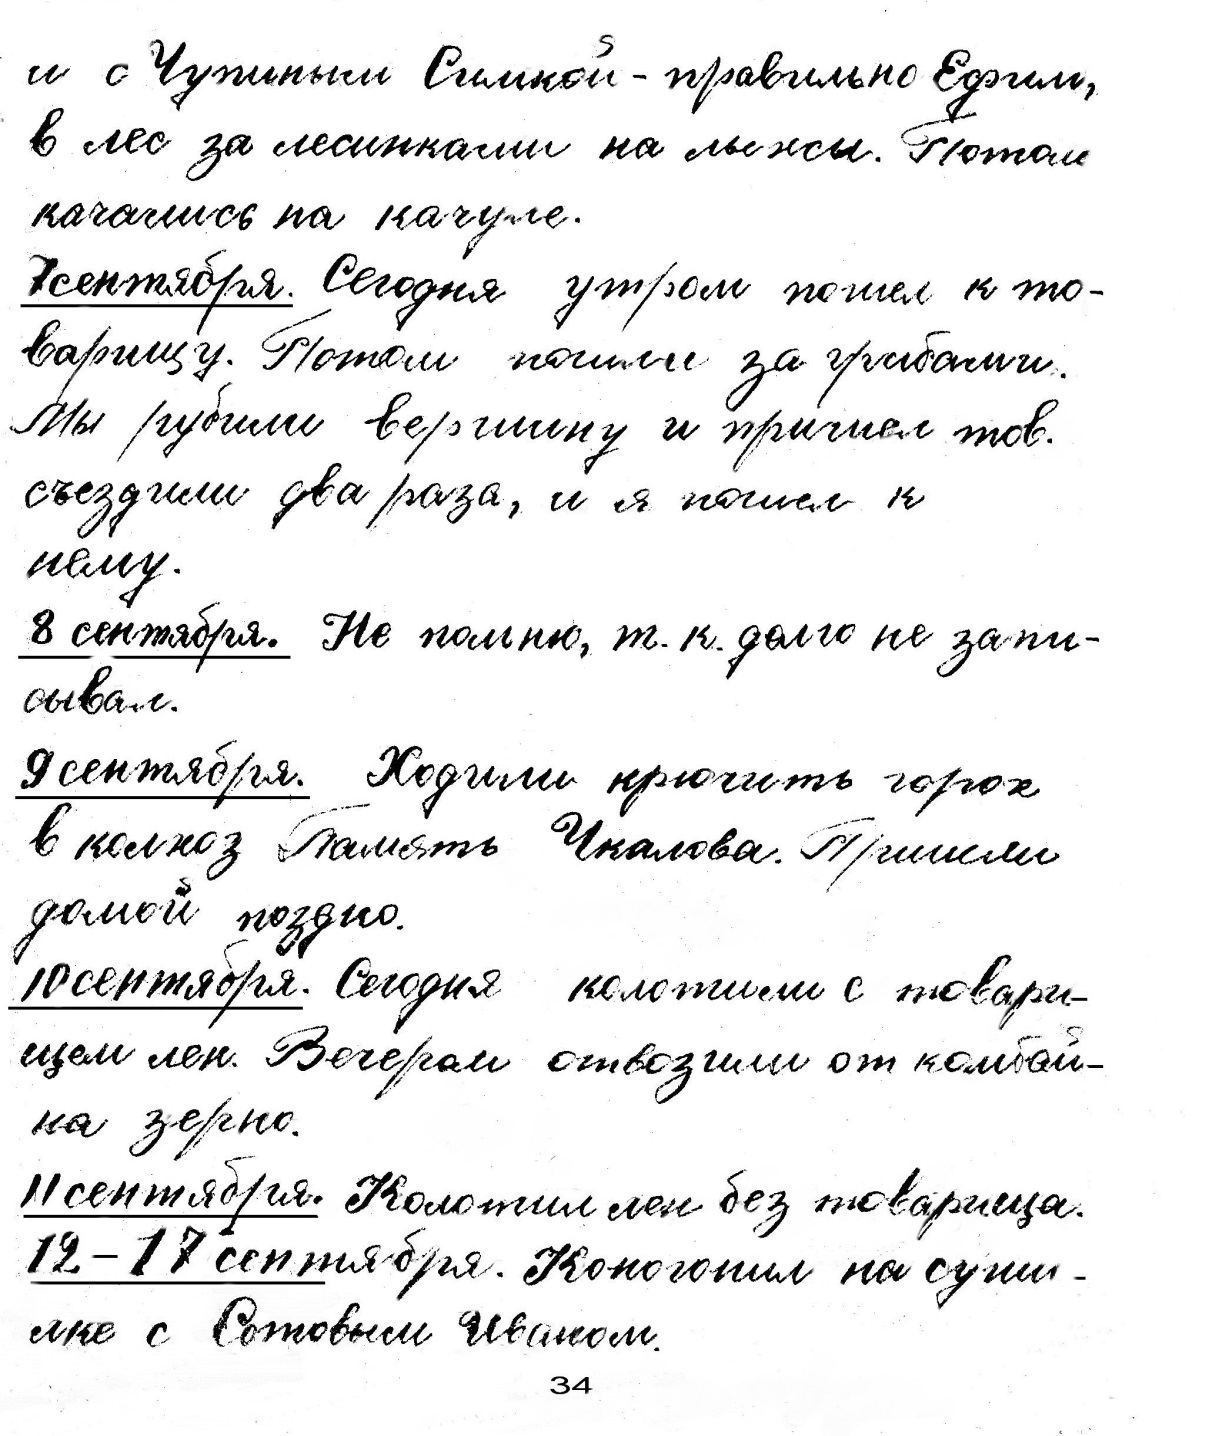 и с Чупиным Симкой - правильно Ефим,
в лес за лесинками на лыжы. Потом
качались на качуле.
7 сентября. Сегодня утром пошел к то-
варищу. Потом пошли за грибами.
Мы рубили вершину и пришел тов.
съездили два раза, и я пошел к
нему.
8 сентября. Не помню, т. к. долго не запи-
сывал.
9 сентября. Ходили крючить горох
в колхоз Память Чкалова. Пришли
домой поздно.
10 сентября. Сегодня колотили с товари-
щем лен. Вечером отвозили от комбай-
на зерно.
11 сентября. Колотил лен без товарища.
12-17 сентября. Коногонил на суши-
лке с Сотовым Иваном.
34